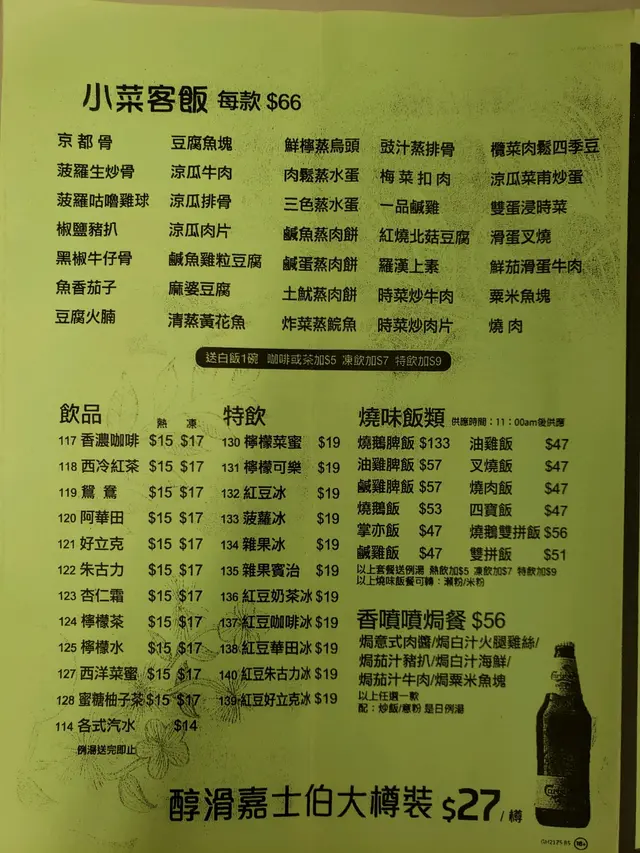 小菜客飯 每款 $66
京都骨 豆腐魚塊 鮮檸蒸烏頭 豉汁蒸排骨 欖菜肉鬆四季豆
菠蘿生炒骨 涼瓜牛肉 肉鬆蒸水蛋 梅菜扣肉 涼瓜菜甫炒蛋
菠蘿咕嚕雞球 涼瓜排骨 三色蒸水蛋 一品鹹雞 雙蛋浸時菜
椒鹽豬扒 涼瓜肉片 鹹魚蒸肉餅 紅燒北菇豆腐 滑蛋叉燒
黑椒牛仔骨 鹹魚雞粒豆腐 鹹蛋蒸肉餅 羅漢上素 鮮茄滑蛋牛肉
魚香茄子 麻婆豆腐 土魷蒸肉餅 時菜炒牛肉 粟米魚塊
豆腐火腩 清蒸黃花魚 炸菜蒸鯇魚 時菜炒肉片 燒肉
送白飯1碗 咖啡或茶加$5 凍飲加$7 特飲加$9
飲品 熱 凍
117 香濃咖啡 $15 $17
118 西冷紅茶 $15 $17
119 鴛鴦 $15 $17
120 阿華田 $15 $17
121 好立克 $15 $17
122 朱古力 $15 $17
123 杏仁霜 $15 $17
124 檸檬茶 $15 $17
125 檸檬水 $15 $17
127 西洋菜蜜 $15 $17
128 蜜糖柚子茶 $15 $17
114 各式汽水 $14
例湯送完即止
特飲
130 檸檬菜蜜 $19
131 檸檬可樂 $19
132 紅豆冰 $19
133 菠蘿冰 $19
134 雜果冰 $19
135 雜果賓治 $19
136 紅豆奶茶冰 $19
137 紅豆咖啡冰 $19
138 紅豆華田冰 $19
140 紅豆朱古力冰 $19
139 紅豆好立克冰 $19
燒味飯類 供應時間：11：00am後供應
燒鵝脾飯 $133 油雞飯 $47
油雞脾飯 $57 叉燒飯 $47
鹹雞脾飯 $57 燒肉飯 $47
燒鵝飯 $53 四寶飯 $47
掌亦飯 $47 燒鵝雙拼飯 $56
鹹雞飯 $47 雙拼飯 $51
以上套餐送例湯 熱飲加$5 凍飲加$7 特飲加$9
以上燒味飯餐可轉：瀨粉/米粉
香噴噴焗餐 $56
焗意式肉醬/焗白汁火腿雞絲/
焗茄汁豬扒/焗白汁海鮮/
焗茄汁牛肉/焗粟米魚塊
以上任選一款
配：炒飯/意粉 是日例湯
醇滑嘉士伯大樽裝 $27/樽
18+